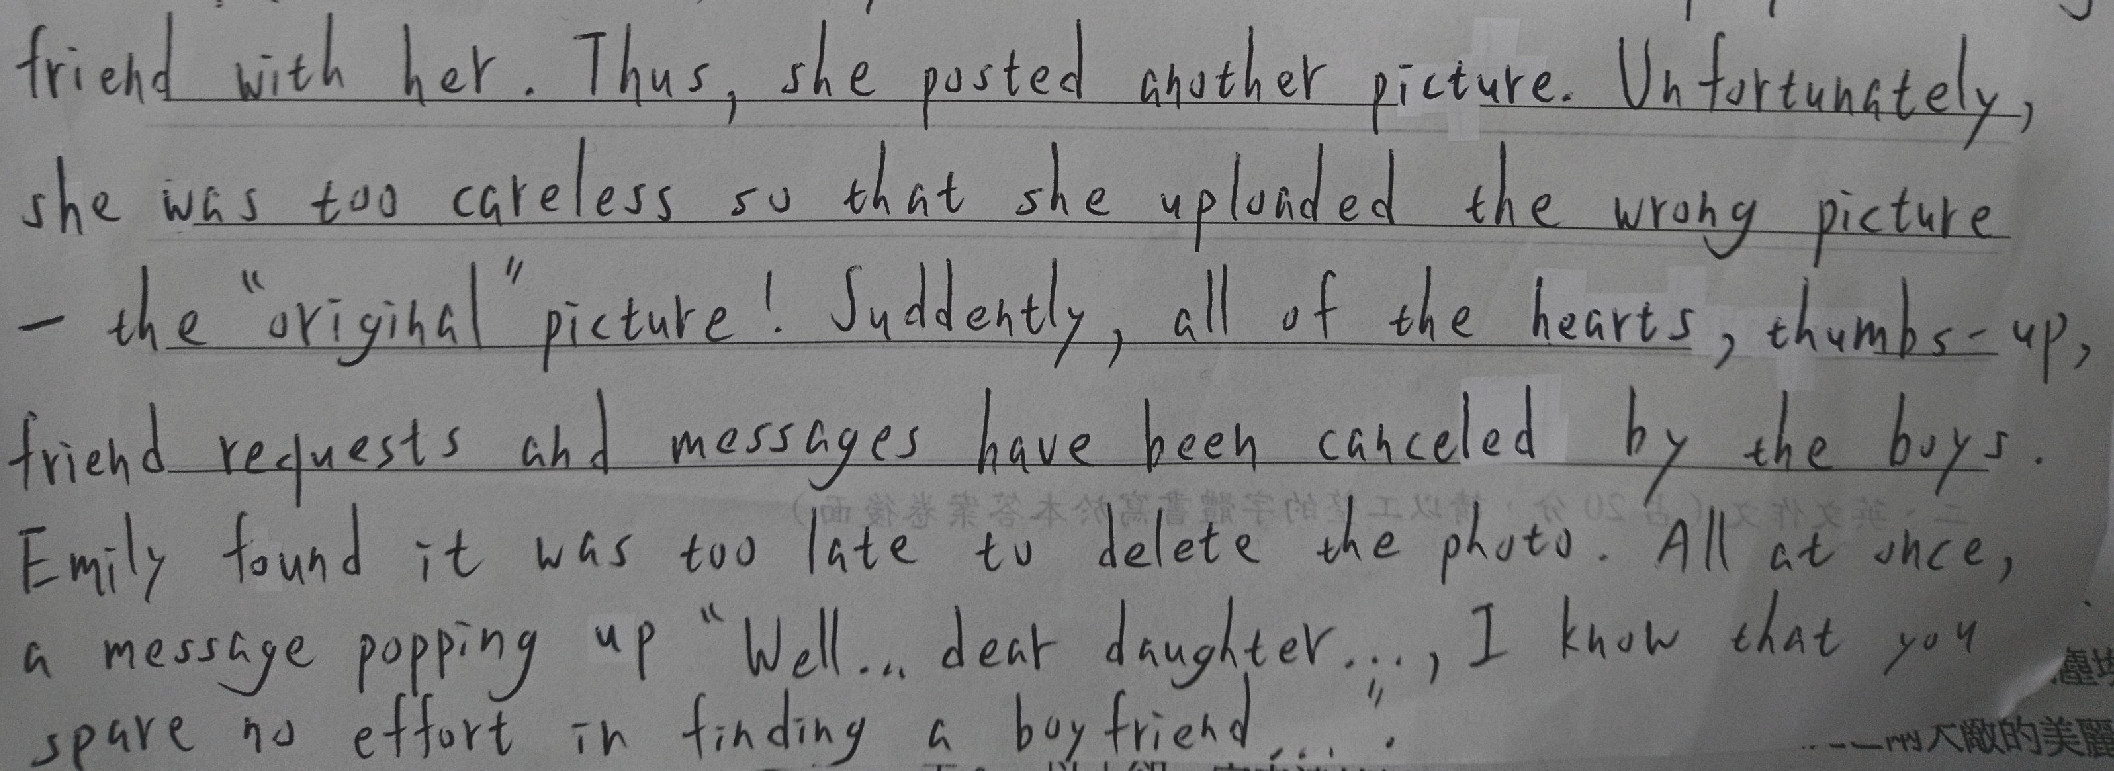 friend with her. Thus, she posted another picture. Unfortunately,
she was too careless so that she uploaded the wrong picture
- the "original" picture! Suddently, all of the hearts, thumbs-up,
friend requests and messages have been canceled by the boys.
二、英文作文(占20分，請以工整的字體書寫於本答案卷後面)
Emily found it was too late to delete the photo. All at once,
a message popping up "Well... dear daughter..., I know that you
spare no effort in finding a boyfriend...".
大敵的美麗